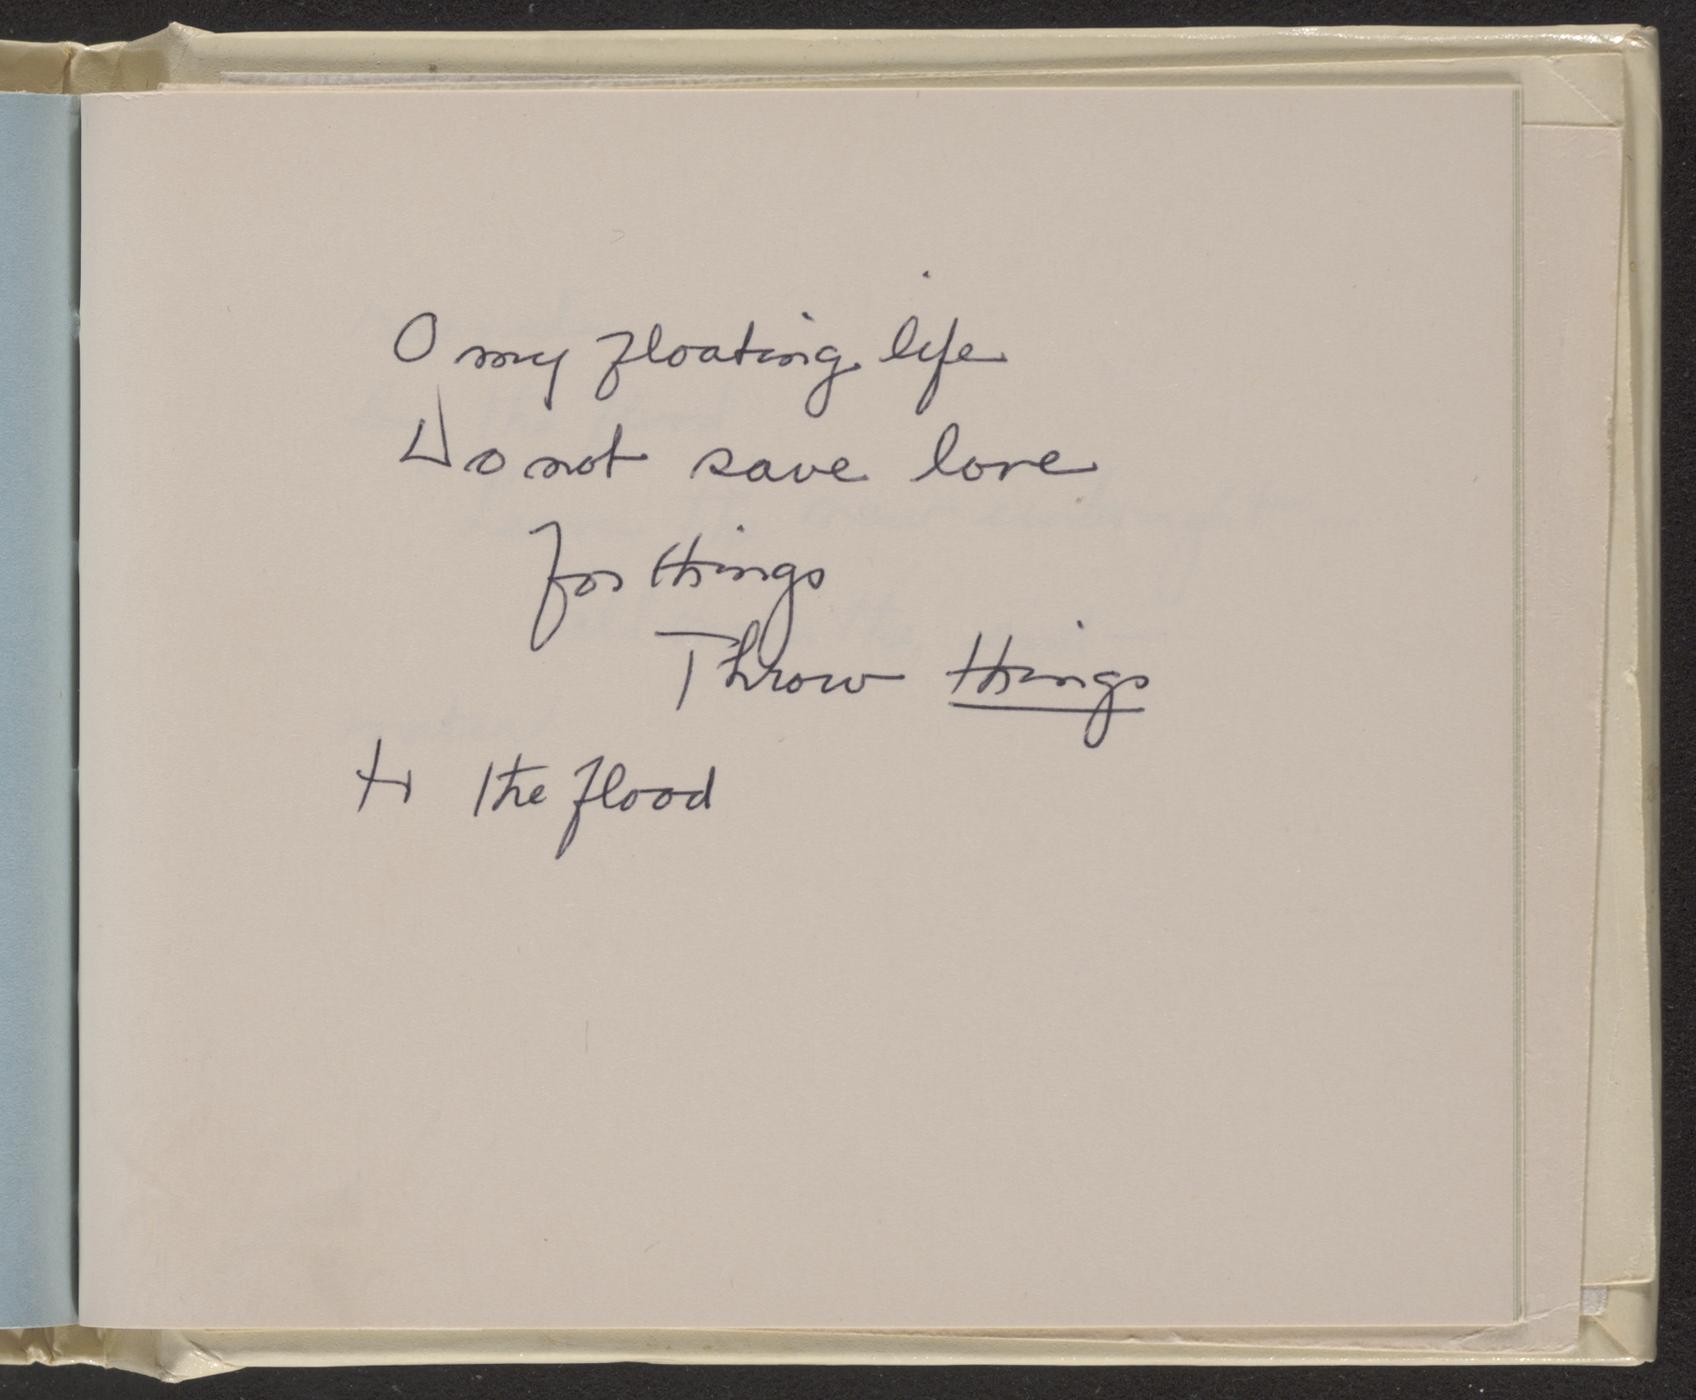 O my floating life
Do not save love
for things
Throw things
to the flood